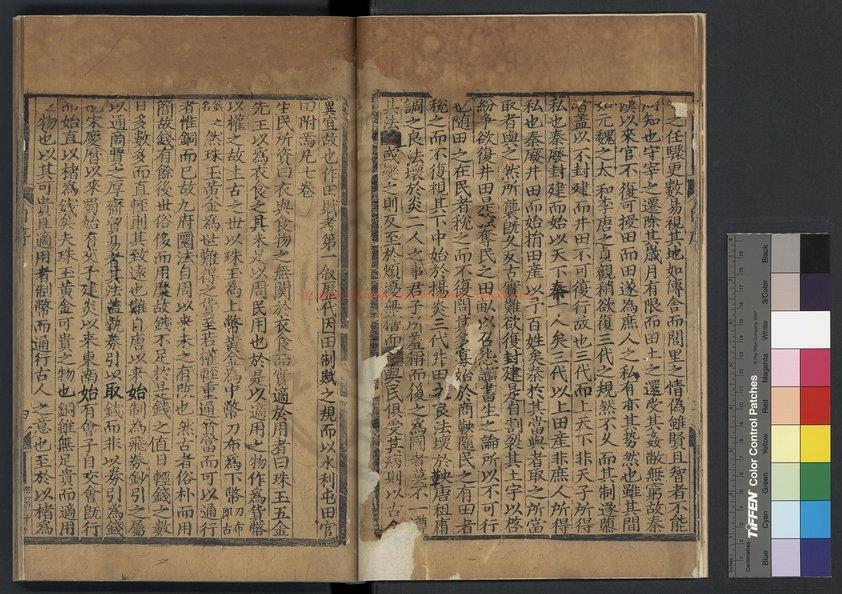 之任驟更數易視其地如傳舍而閭里之情偽雖賢且智者不能
知也守宰之遷除其歲月有限而田土之還受其姦敝無窮故秦
漢以來官不復可授田而田遂為庶人之私有亦其勢然也雖其間
如元魏之太和李唐之貞觀稍欲復三代之規然不久而其制遂隳
者蓋以不封建而井田不可復行故也三代而上天下非天子所得
私也秦廢封建而始以天下奉一人矣三代以上田產非庶人所得
私也秦廢井田而始捐田產以予百姓矣秦於其當與者取之所當
取者與之然所襲既久反古實難欲復封建是自割裂其土宇以啓
紛爭欲復井田是強奪民之田畝以召怨讟書生之論所以不可行
也隨田之在民者稅之而不復問其多寡始於商鞅隨民之有田者
稅之而不復視其丁中始於楊炎三代井田之良法壞於鞅唐租庸
調之良法壞於炎二人之事君子所羞稱而後之為國者莫不一遵
其法或變之則反至於煩擾無稽而國與民俱受其病則以古今
異宜故也作田賦考第一敘歷代因田制賦之規而以水利屯田官
田附焉凡七卷
生民所資曰衣與食物之無關於衣食而實適於用者曰珠玉五金
先王以為衣食之具未足以周民用也於是以適用之物作為貨幣
以權之故上古之世以珠玉為上幣黃金為中幣刀布為下幣 刀布即古
錢名 然珠玉黃金為世難得之貨至若權輕重通貧富而可以通行
者惟銅而已故九府圜法自周以來未之有改也然古者俗朴而用
簡故錢有餘後世俗侈而用糜故錢不足於是錢之直日輕錢之數
日多數多而直輕則其致遠也難自唐以來始制為飛券鈔引之屬
以通商賈之厚齎貿易者其法蓋執券引以取錢而非以券引為錢
也宋慶曆以來蜀始有交子建炎以來東南始有會子自交會既行
而始直以楮為錢矣夫珠玉黃金可貴之物也銅雖無足貴而適用
之物也以其可貴且適用者制幣而通行古人之意也至於以楮為